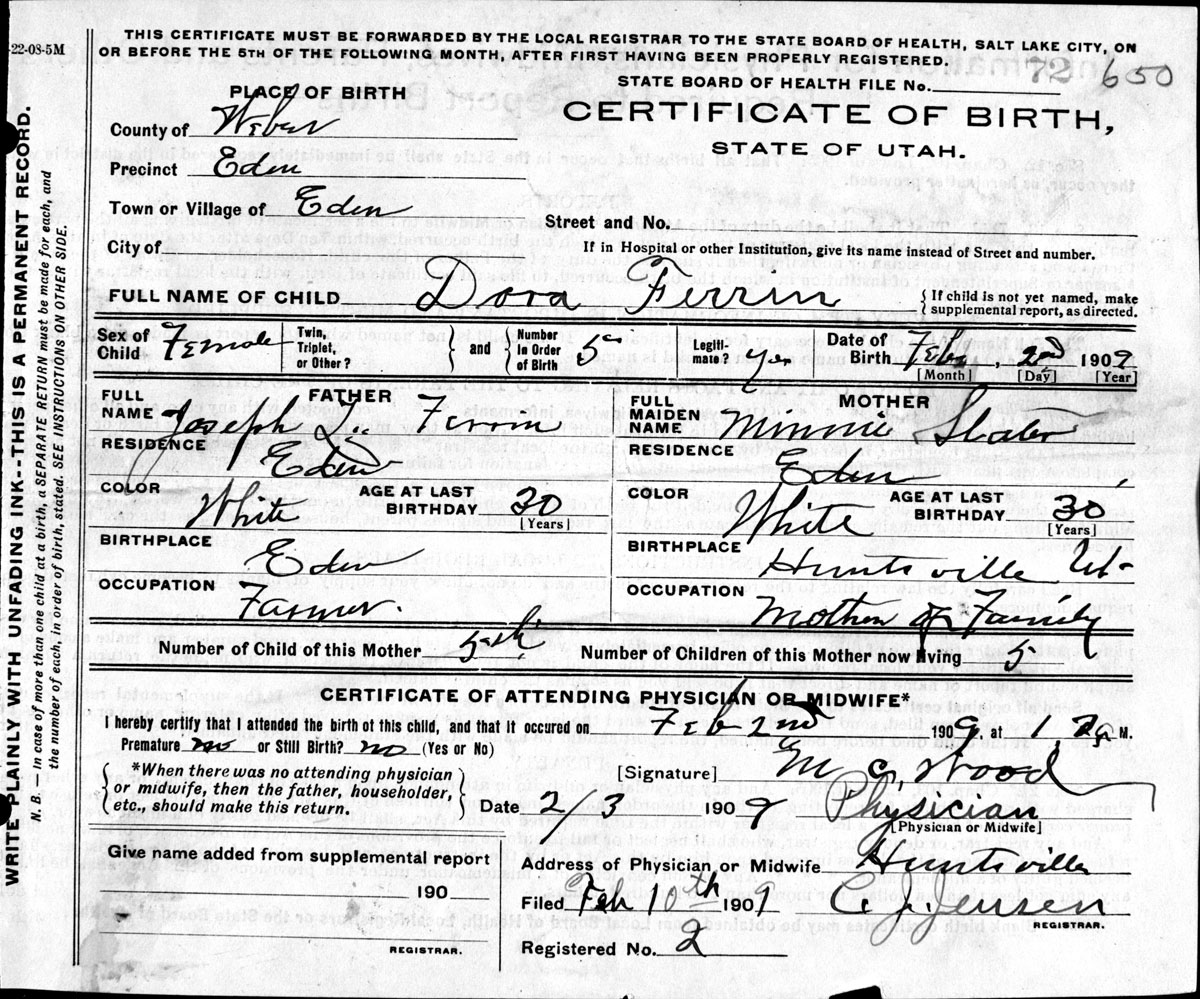 -22-08-5M
THIS CERTIFICATE MUST BE FORWARDED BY THE LOCAL REGISTRAR TO THE STATE BOARD OF HEALTH, SALT LAKE CITY, ON
OR BEFORE THE 5TH OF THE FOLLOWING MONTH, AFTER FIRST HAVING BEEN PROPERLY REGISTERED.
72 650
STATE BOARD OF HEALTH FILE No.
PLACE OF BIRTH
CERTIFICATE OF BIRTH,
STATE OF UTAH.
County of Weber
Precinct Eden
Town or Village of Eden
Street and No.
City of
If in Hospital or other Institution, give its name instead of Street and number.
FULL NAME OF CHILD Dora Ferrin { If child is not yet named, make supplemental report, as directed.
Sex of Child Female Twin, Triplet, or Other? } and { Number in Order of Birth 5 Legitimate? Yes Date of Birth Feby, 2nd 1909
[Month] [Day] [Year]
FATHER
FULL NAME Joseph Ferrin
RESIDENCE Eden
COLOR White AGE AT LAST BIRTHDAY 30 [Years]
BIRTHPLACE Eden
OCCUPATION Farmer.
MOTHER
FULL MAIDEN NAME Minnie
RESIDENCE Eden
COLOR White AGE AT LAST BIRTHDAY 30 [Years]
BIRTHPLACE Huntsville Ut
OCCUPATION Mother of Family
Number of Child of this Mother 5th Number of Children of this Mother now living 5
CERTIFICATE OF ATTENDING PHYSICIAN OR MIDWIFE*
I hereby certify that I attended the birth of this child, and that it occured on Feb 2nd 1909, at 1 M.
Premature no or Still Birth? no (Yes or No)
{ *When there was no attending physician or midwife, then the father, householder, etc., should make this return. }
[Signature] M C Wood
Date 2/3 1909 Physician
[Physician or Midwife]
Give name added from supplemental report
190
REGISTRAR.
Address of Physician or Midwife Huntsville
Filed Feb 10th 1909 C J Jensen
REGISTRAR.
Registered No. 2
WRITE PLAINLY WITH UNFADING INK--THIS IS A PERMANENT RECORD.
N. B. — In case of more than one child at a birth, a SEPARATE RETURN must be made for each, and
the number of each, in order of birth, stated. SEE INSTRUCTIONS ON OTHER SIDE.